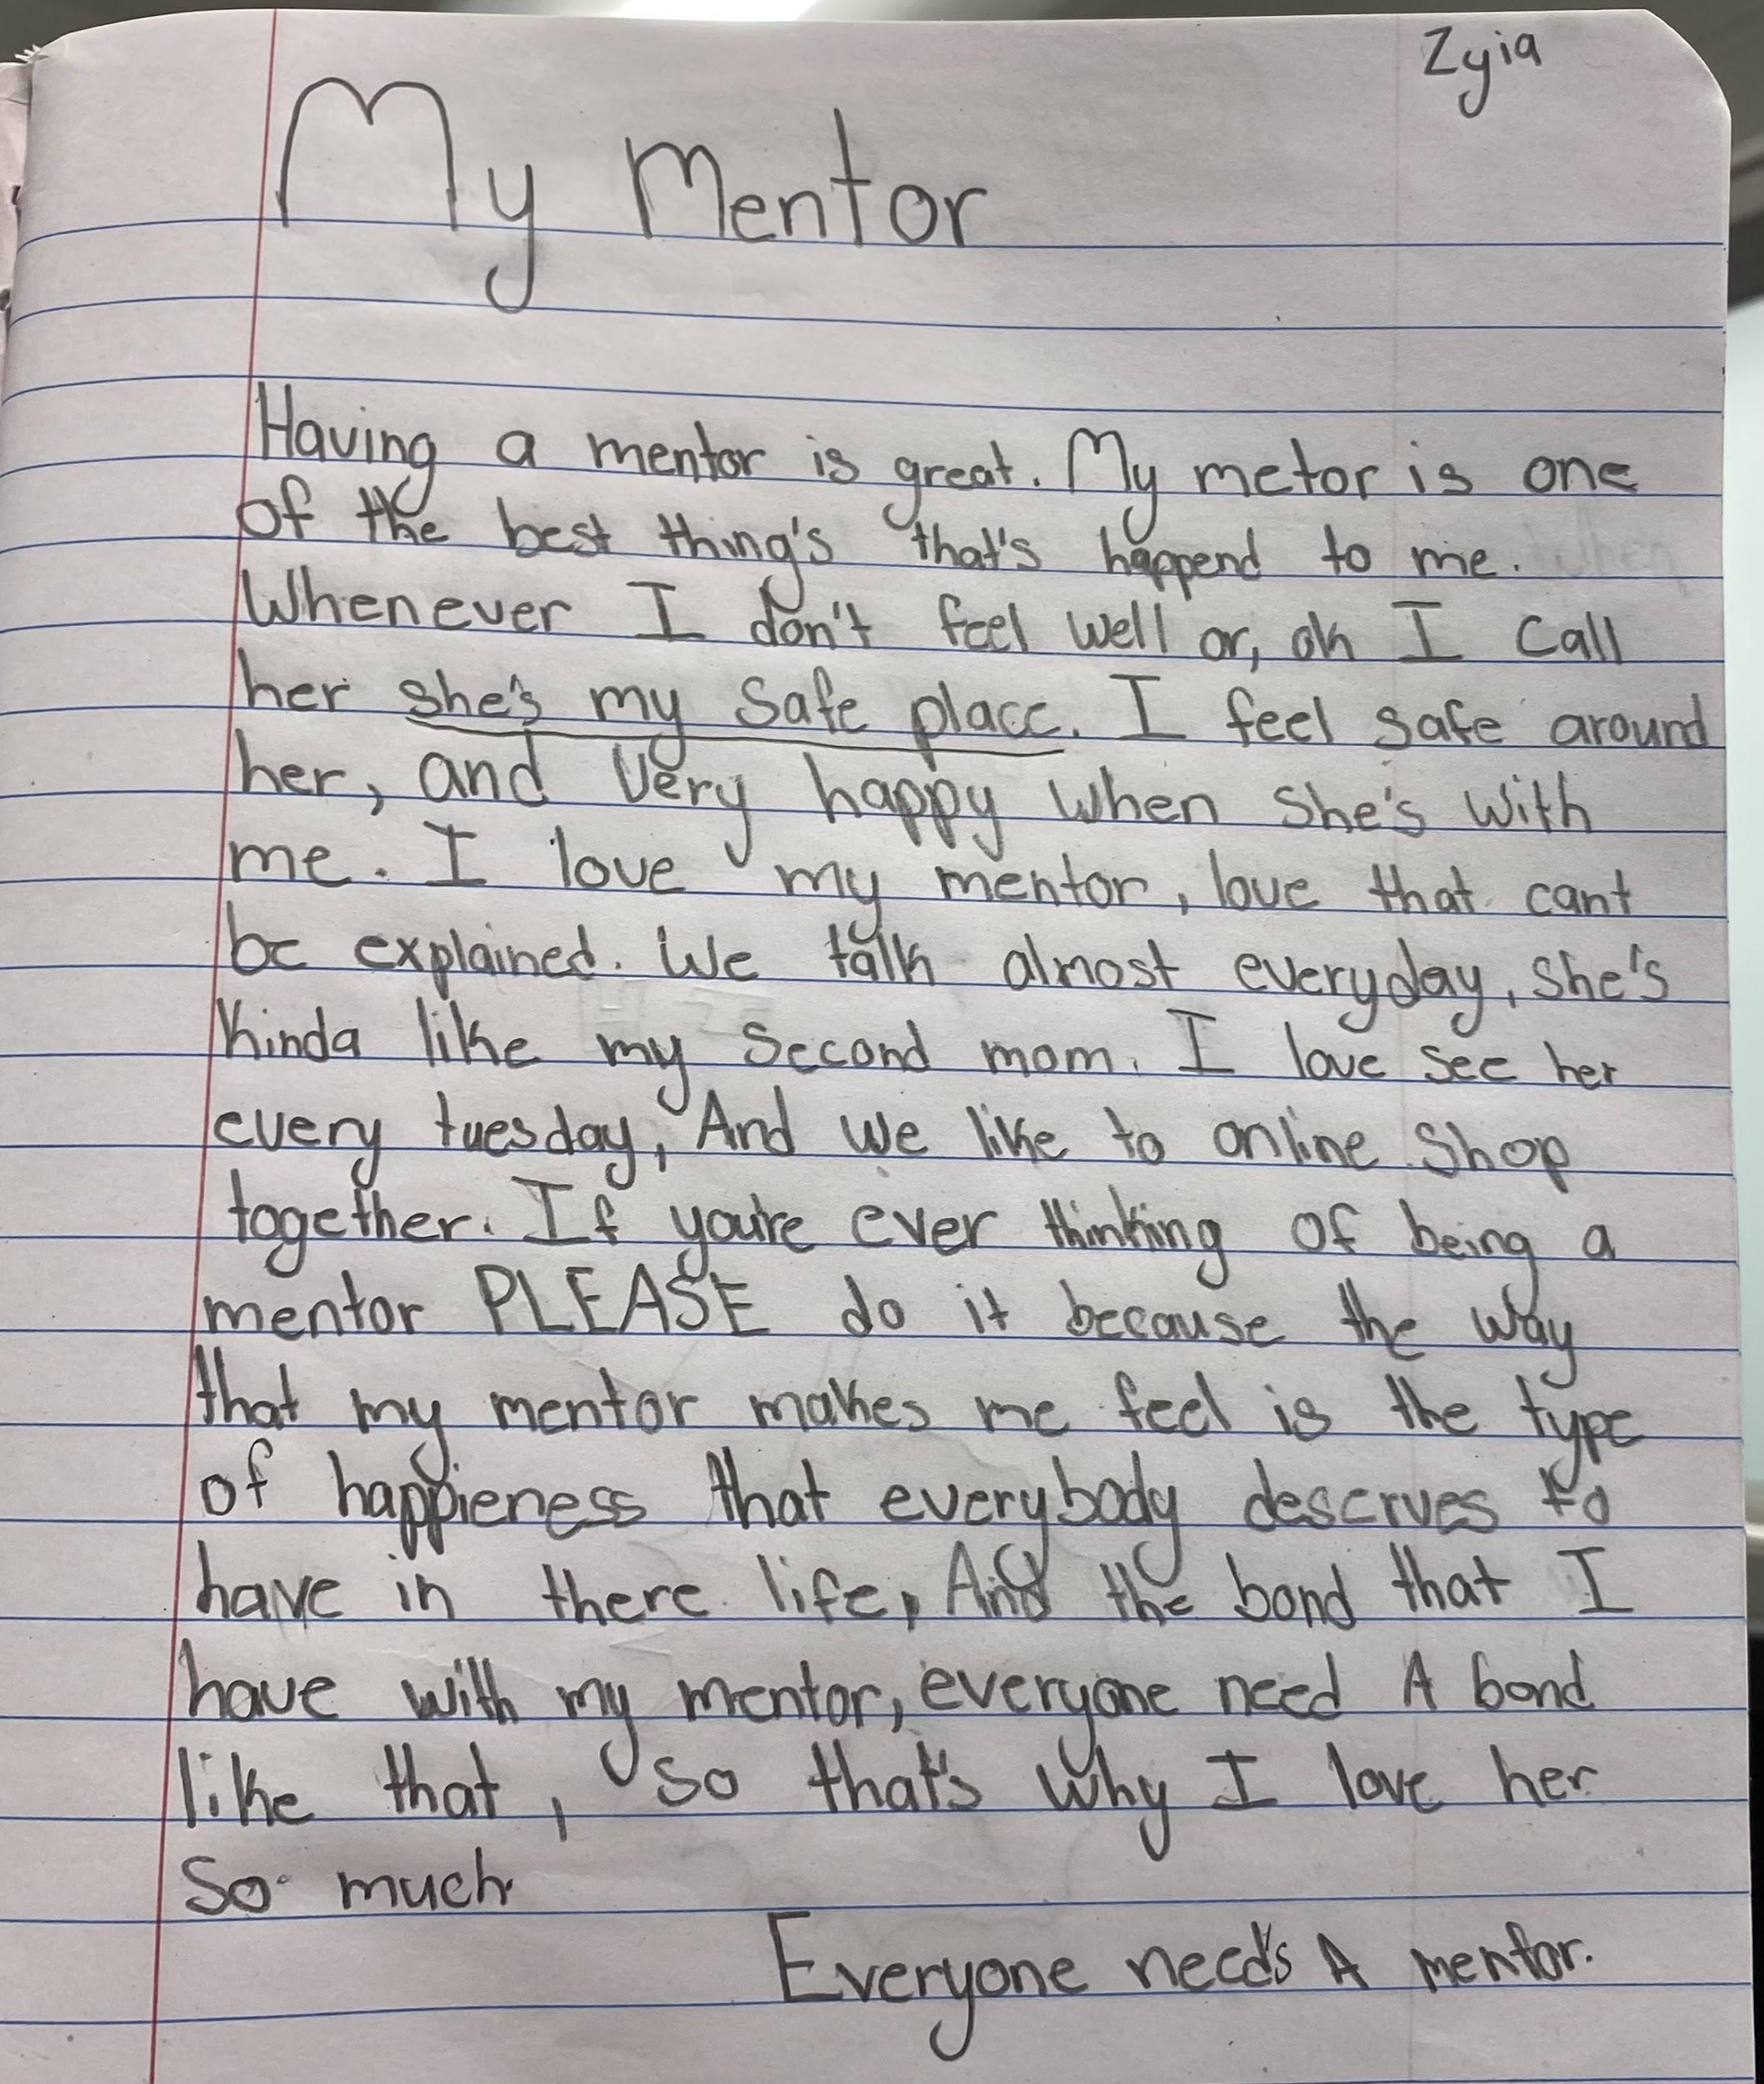 Zyia
My Mentor
Having a mentor is great. My metor is one
of the best thing's that's happend to me.
Whenever I don't feel well or, ok I call
her she's my safe place. I feel safe around
her, and very happy when she's with
me. I love my mentor, love that cant
be explained. We talk almost everyday, she's
kinda like my second mom. I love see her
every tuesday, And we like to online shop
together. If you're ever thinking of being a
mentor PLEASE do it because the way
that my mentor makes me feel is the type
of happieness that everybody deserves to
have in there life, And the bond that I
have with my mentor, everyone need A bond
like that, so that's why I love her
so much
Everyone need's A mentor.